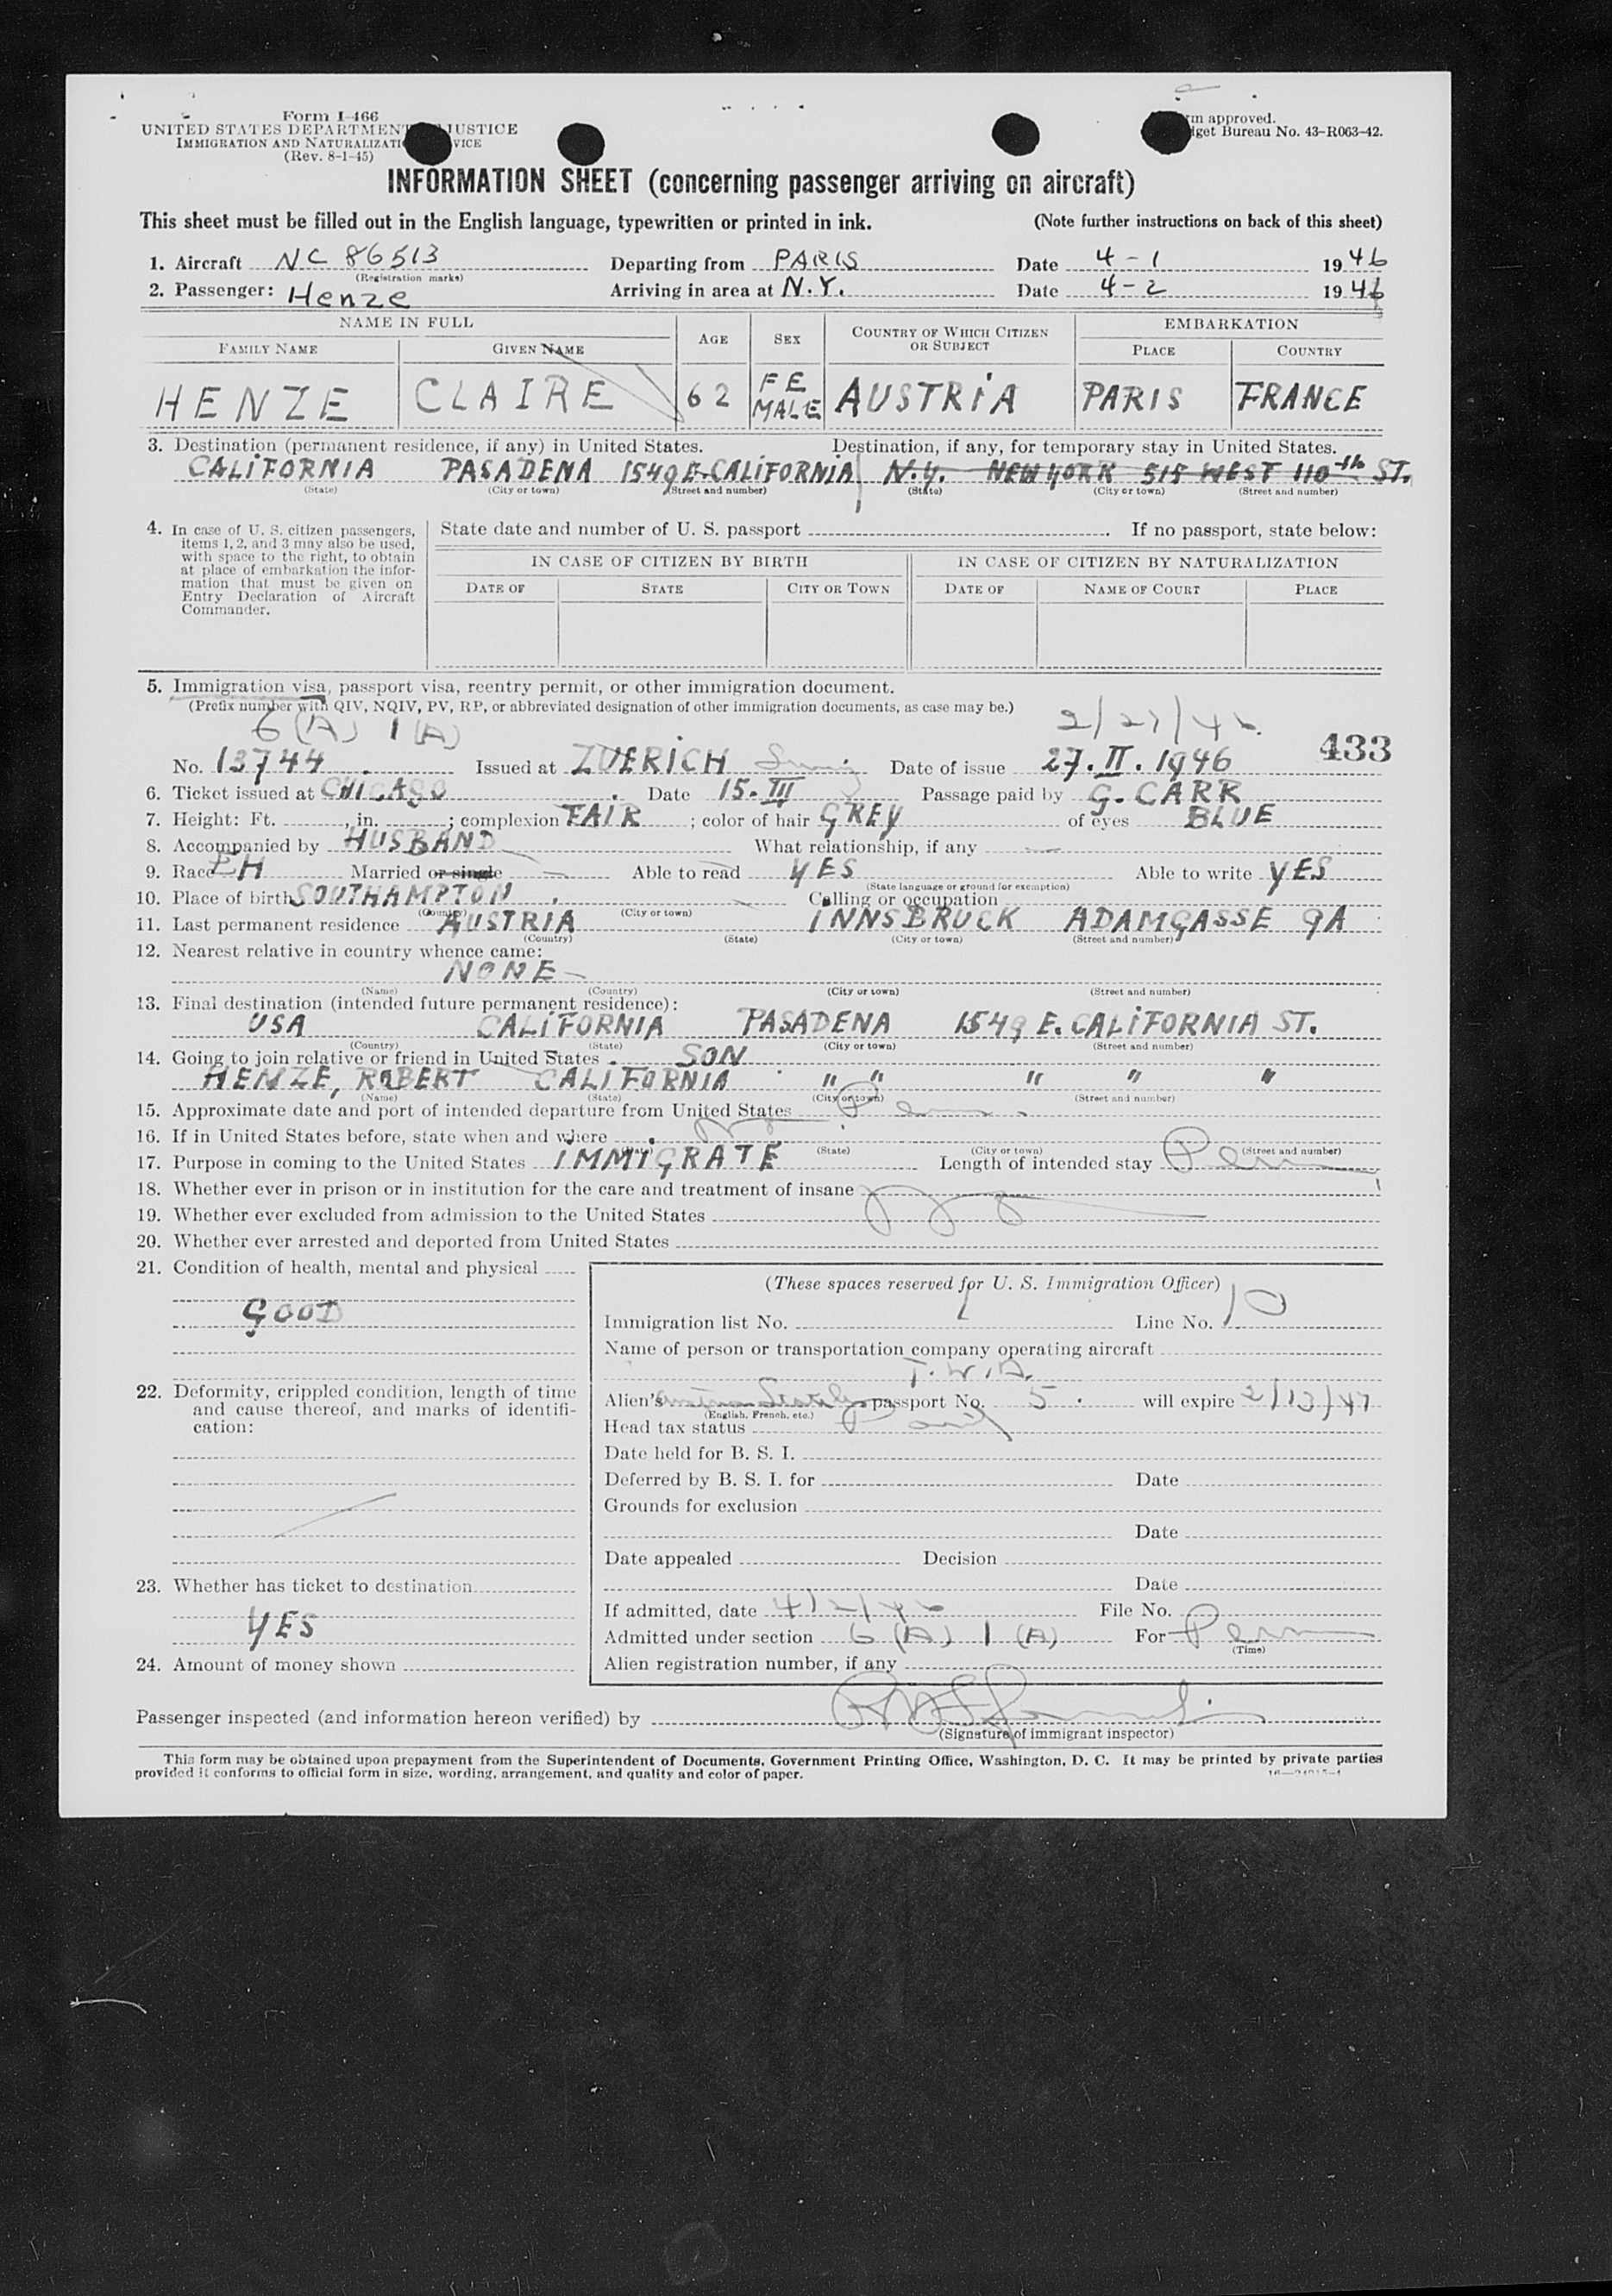 Form I-466
UNITED STATES DEPARTMENT JUSTICE
IMMIGRATION AND NATURALIZATI VICE
(Rev. 8-1-45)
rm approved.
get Bureau No. 43-R063-42.
INFORMATION SHEET (concerning passenger arriving on aircraft)
This sheet must be filled out in the English language, typewritten or printed in ink. (Note further instructions on back of this sheet)
1. Aircraft NC 86513 Departing from PARIS Date 4-1 1946
(Registration marks)
2. Passenger: Henze Arriving in area at N.Y. Date 4-2 1946
NAME IN FULL AGE SEX COUNTRY OF WHICH CITIZEN OR SUBJECT EMBARKATION
FAMILY NAME GIVEN NAME PLACE COUNTRY
HENZE CLAIRE 62 FE MALE AUSTRIA PARIS FRANCE
3. Destination (permanent residence, if any) in United States. Destination, if any, for temporary stay in United States.
CALIFORNIA PASADENA 1549 E. CALIFORNIA N.Y. NEW YORK 515 WEST 110th ST.
(State) (City or town) (Street and number) (State) (City or town) (Street and number)
4. In case of U. S. citizen passengers, items 1, 2, and 3 may also be used, with space to the right, to obtain at place of embarkation the information that must be given on Entry Declaration of Aircraft Commander.
State date and number of U. S. passport . If no passport, state below:
IN CASE OF CITIZEN BY BIRTH IN CASE OF CITIZEN BY NATURALIZATION
DATE OF STATE CITY OR TOWN DATE OF NAME OF COURT PLACE
5. Immigration visa, passport visa, reentry permit, or other immigration document.
(Prefix number with QIV, NQIV, PV, RP, or abbreviated designation of other immigration documents, as case may be.)
6 (A) 1 (A) 2/27/46
433
No. 13744 Issued at ZUERICH Date of issue 27. II. 1946
6. Ticket issued at CHICAGO Date 15. III Passage paid by G. CARR
7. Height: Ft. , in. ; complexion FAIR ; color of hair GREY of eyes BLUE
8. Accompanied by HUSBAND What relationship, if any —
9. Race EH Married or single Able to read YES Able to write YES
(State language or ground for exemption)
10. Place of birth SOUTHAMPTON Calling or occupation
(Country) (City or town)
11. Last permanent residence AUSTRIA INNSBRUCK ADAMGASSE 9A
(Country) (State) (City or town) (Street and number)
12. Nearest relative in country whence came:
NONE
(Name) (Country) (City or town) (Street and number)
13. Final destination (intended future permanent residence):
USA CALIFORNIA PASADENA 1549 E. CALIFORNIA ST.
(Country) (State) (City or town) (Street and number)
14. Going to join relative or friend in United States SON
HENZE, ROBERT CALIFORNIA " " " " "
(Name) (State) (City or town) (Street and number)
15. Approximate date and port of intended departure from United States Perm
16. If in United States before, state when and where No
(State) (City or town) (Street and number)
17. Purpose in coming to the United States IMMIGRATE Length of intended stay Perm
18. Whether ever in prison or in institution for the care and treatment of insane
19. Whether ever excluded from admission to the United States No
20. Whether ever arrested and deported from United States
21. Condition of health, mental and physical
GOOD
22. Deformity, crippled condition, length of time and cause thereof, and marks of identification:
23. Whether has ticket to destination
YES
24. Amount of money shown
(These spaces reserved for U. S. Immigration Officer)
Immigration list No. 1 Line No. 10
Name of person or transportation company operating aircraft
T.W.A.
Alien's passport No. 5 will expire 2/13/47
(English, French, etc.)
Head tax status Paid
Date held for B. S. I.
Deferred by B. S. I. for Date
Grounds for exclusion
Date
Date appealed Decision
Date
If admitted, date 4/2/46 File No.
Admitted under section 6 (A) 1 (A) For Perm
(Time)
Alien registration number, if any
Passenger inspected (and information hereon verified) by
(Signature of immigrant inspector)
This form may be obtained upon prepayment from the Superintendent of Documents, Government Printing Office, Washington, D. C. It may be printed by private parties
provided it conforms to official form in size, wording, arrangement, and quality and color of paper.